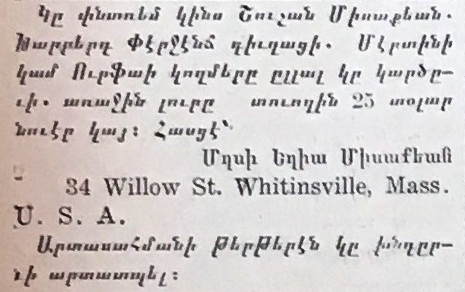 Կը փնտռեմ կինս Շուշան Միսաքեան.
Խարբերդ Փէրչէնճ գիւղացի. Մէրտինի
կամ Ուրֆաի կողմերը ըլլալ կը կարծը-
ւի. առաջին լուրը տուողին 25 տօլար
նուէր կայ։ Հասցէ՝
Մղսի Եղիա Միսաքեան
34 Willow St. Whitinsville, Mass.
U. S. A.
Արտասահմանի թերթերէն կը խնդըր-
ւի արտատպել։